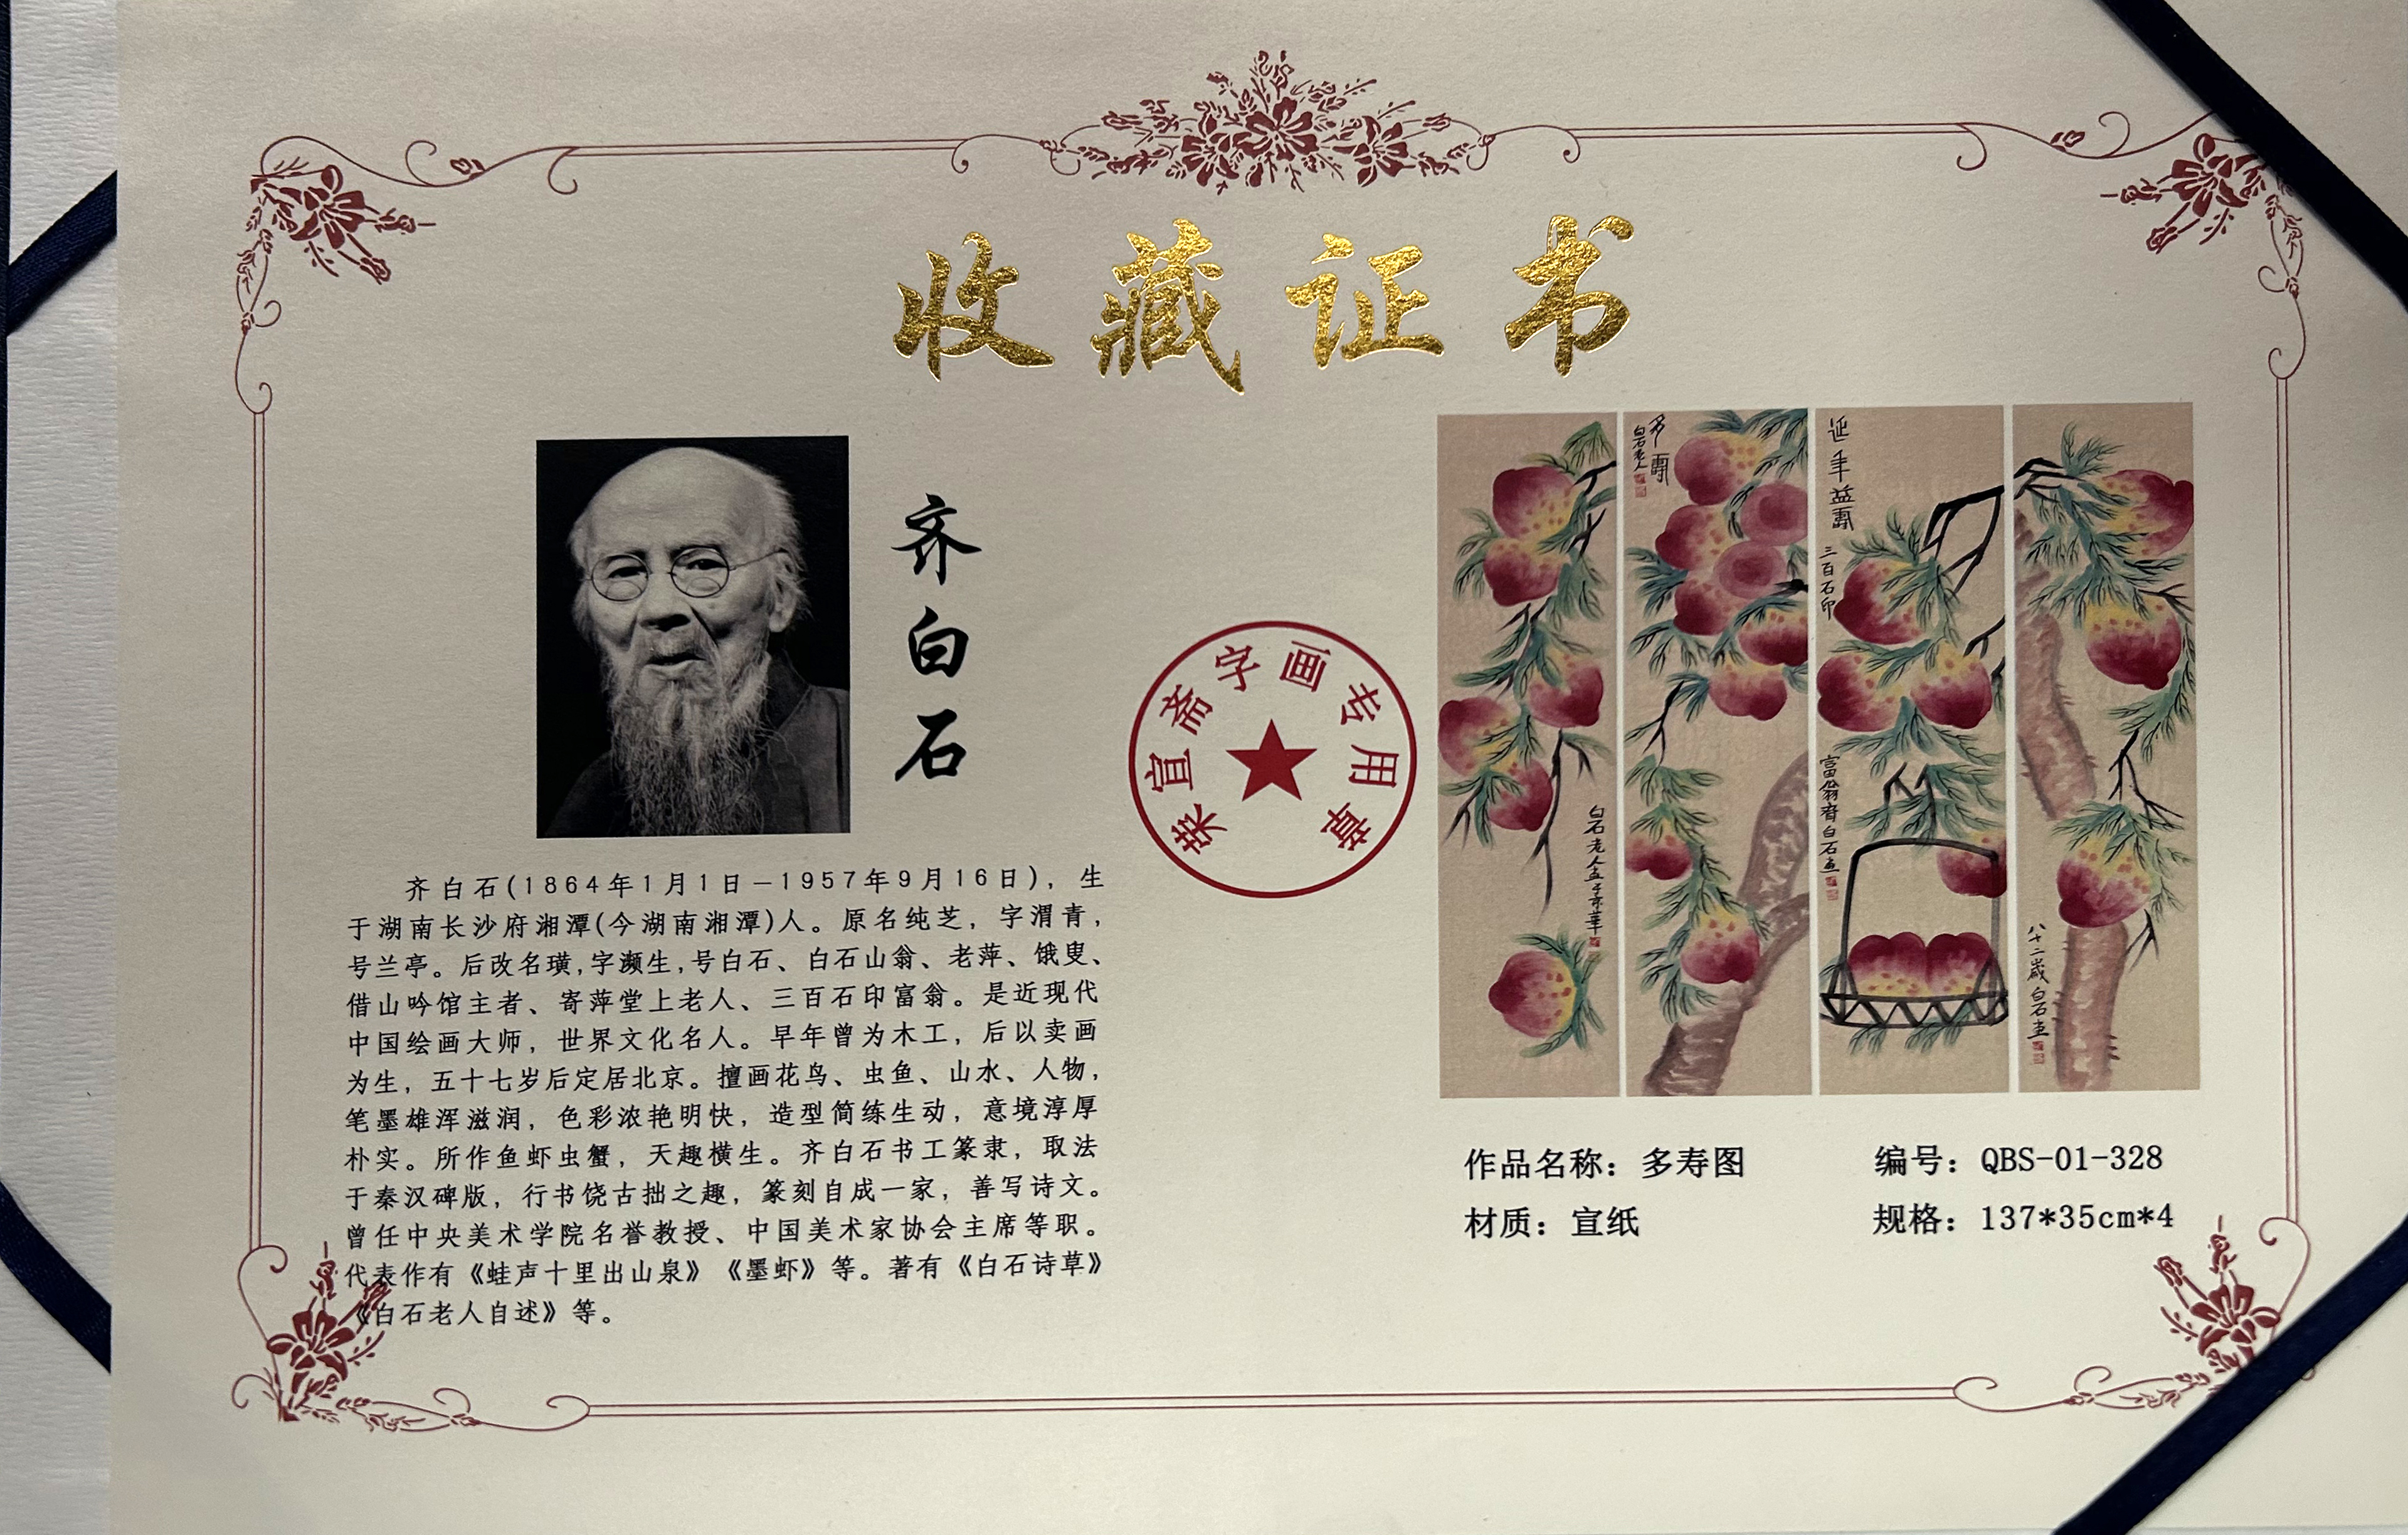 收藏证书
齐白石
齐白石(1864年1月1日—1957年9月16日)，生
于湖南长沙府湘潭(今湖南湘潭)人。原名纯芝，字渭青，
号兰亭。后改名璜,字濒生,号白石、白石山翁、老萍、饿叟、
借山吟馆主者、寄萍堂上老人、三百石印富翁。是近现代
中国绘画大师，世界文化名人。早年曾为木工，后以卖画
为生，五十七岁后定居北京。擅画花鸟、虫鱼、山水、人物，
笔墨雄浑滋润，色彩浓艳明快，造型简练生动，意境淳厚
朴实。所作鱼虾虫蟹，天趣横生。齐白石书工篆隶，取法
于秦汉碑版，行书饶古拙之趣，篆刻自成一家，善写诗文。
曾任中央美术学院名誉教授、中国美术家协会主席等职。
代表作有《蛙声十里出山泉》《墨虾》等。著有《白石诗草》
《白石老人自述》等。
荣宣斋字画专用章
白石老人画于京华
多壽
白石老人
延年益壽
三百石印
富翁齊白石画
八十二歲白石画
作品名称：多寿图
编号：QBS-01-328
材质：宣纸
规格：137*35cm*4